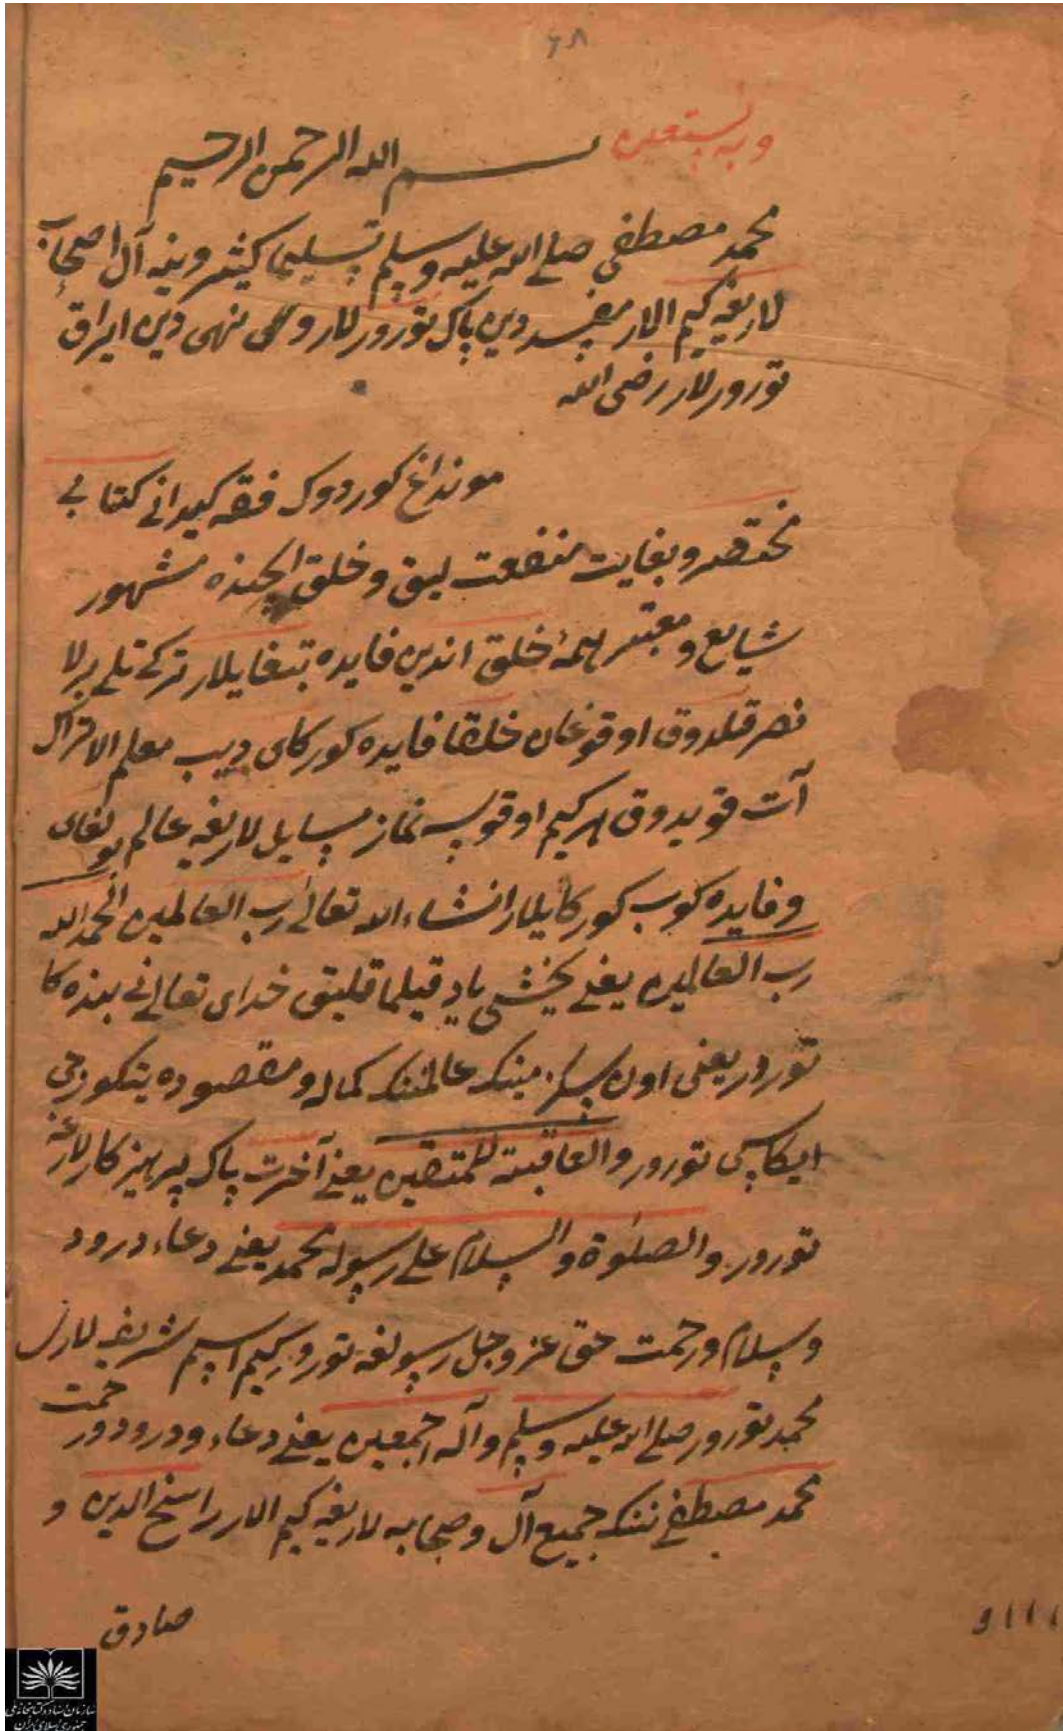 ٦٨
وبه نستعین
بسم الله الرحمن الرحیم
محمد مصطفی صلی الله علیه وسلم تسلیما کثیر وینه آل اصحاب
لاریغه کیم الار مفسد دین پاک تورورلار و نهی دین ایراق
تورورلار رضی الله
مونداغ کوردوک فقه کیدانی کتابی
مختصر و بغایت منفعت لیق و خلق ایچنده مشهور
شایع و معتبر همهٔ خلق اندین فایده تبغایلار ترکی تلی برلا
نصر قیلدوق اوقوغان خلقا فایده کورکای دیب معلم الاتراک
آت قویدوق هر کیم اوقوسه نماز مسایل لاریغه عالم بولغای
و فایده کوب کورکایلار انشاء الله تعالی رب العالمین الحمد الله
رب العالمین یعنی یخشی یاد قیلماقلیق خدای تعالی نی بنده کا
تورور یعنی اون سکز مینک عالمننک کماله و مقصوده یتکوزجی
ایکاسی تورور والعاقبة للمتقین یعنی آخرت پاک پرهیزکارلارغه
تورور والصلوة والسلام علی رسوله محمد یعنی دعاء درود
وسلام ورحمت حق عز وجل رسولغه تورور کیم اسم شریف لاری
محمد تورور صلی الله علیه وسلم وآله اجمعین یعنی دعاء ودرود ورحمت
محمد مصطفی ننک جمیع آل وصحابه لاریغه کیم الار راسخ الدین و
صادق
سازمان اسناد و کتابخانه ملی
جمهوری اسلامی ایران